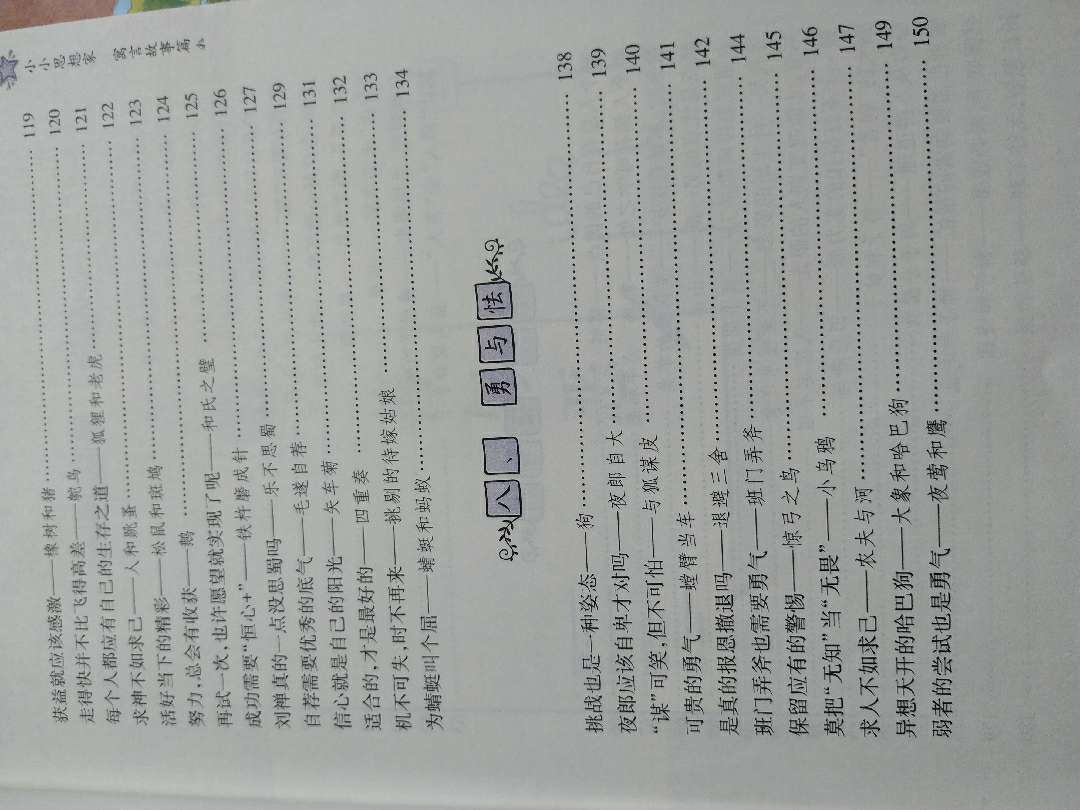 小小思想家 寓言故事篇
获益就应该感激——橡树和猪……119
走得快并不比飞得高差——鸵鸟……120
每个人都应有自己的生存之道——狐狸和老虎……121
求神不如求己——人和跳蚤……122
活好当下的精彩——松鼠和斑鸠……123
努力,总会有收获——鹅……124
再试一次,也许愿望就实现了呢——和氏之璧……125
成功需要“恒心+”——铁杵磨成针……126
刘禅真的一点没思蜀吗——乐不思蜀……127
自荐需要优秀的底气——毛遂自荐……129
信心就是自己的阳光——矢车菊……131
适合的,才是最好的——四重奏……132
机不可失,时不再来——挑剔的待嫁姑娘……133
为蜻蜓叫个屈——蜻蜓和蚂蚁……134
八、勇与怯
挑战也是一种姿态——狗……138
夜郎应该自卑才对吗——夜郎自大……139
“谋”可笑,但不可怕——与狐谋皮……140
可贵的勇气——螳臂当车……141
是真的报恩撤退吗——退避三舍……142
班门弄斧也需要勇气——班门弄斧……144
保留应有的警惕——惊弓之鸟……145
莫把“无知”当“无畏”——小乌鸦……146
求人不如求己——农夫与河……147
异想天开的哈巴狗——大象和哈巴狗……149
弱者的尝试也是勇气——夜莺和鹰……150